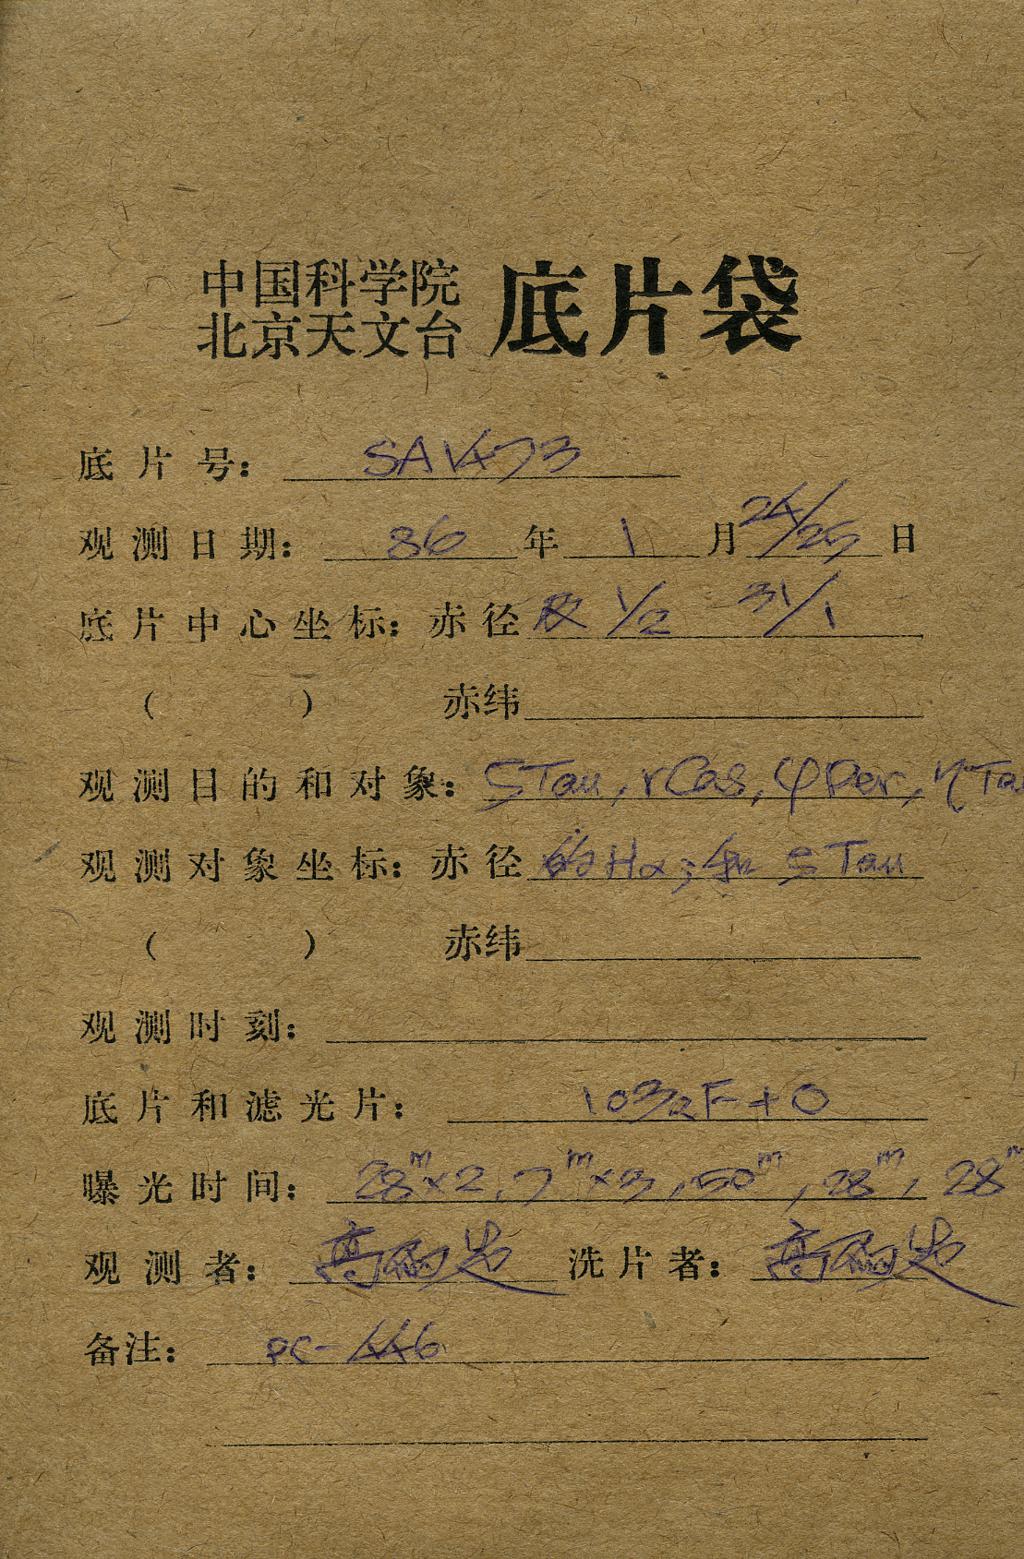 中国科学院
北京天文台 底片袋
底片号： SA1473
观测日期： 86 年 1 月 24/25 日
底片中心坐标：赤径 及 1/2 31/1
（ ） 赤纬
观测目的和对象： ζTau, rCas, φPer, η
观测对象坐标：赤径 的Hα；和 ζ Tau
（ ） 赤纬
观测时刻：
底片和滤光片： 103aF+O
曝光时间： 28m×2, 7m×3, 50m, 28m, 28m
观测者： 洗片者：
备注： PC-446